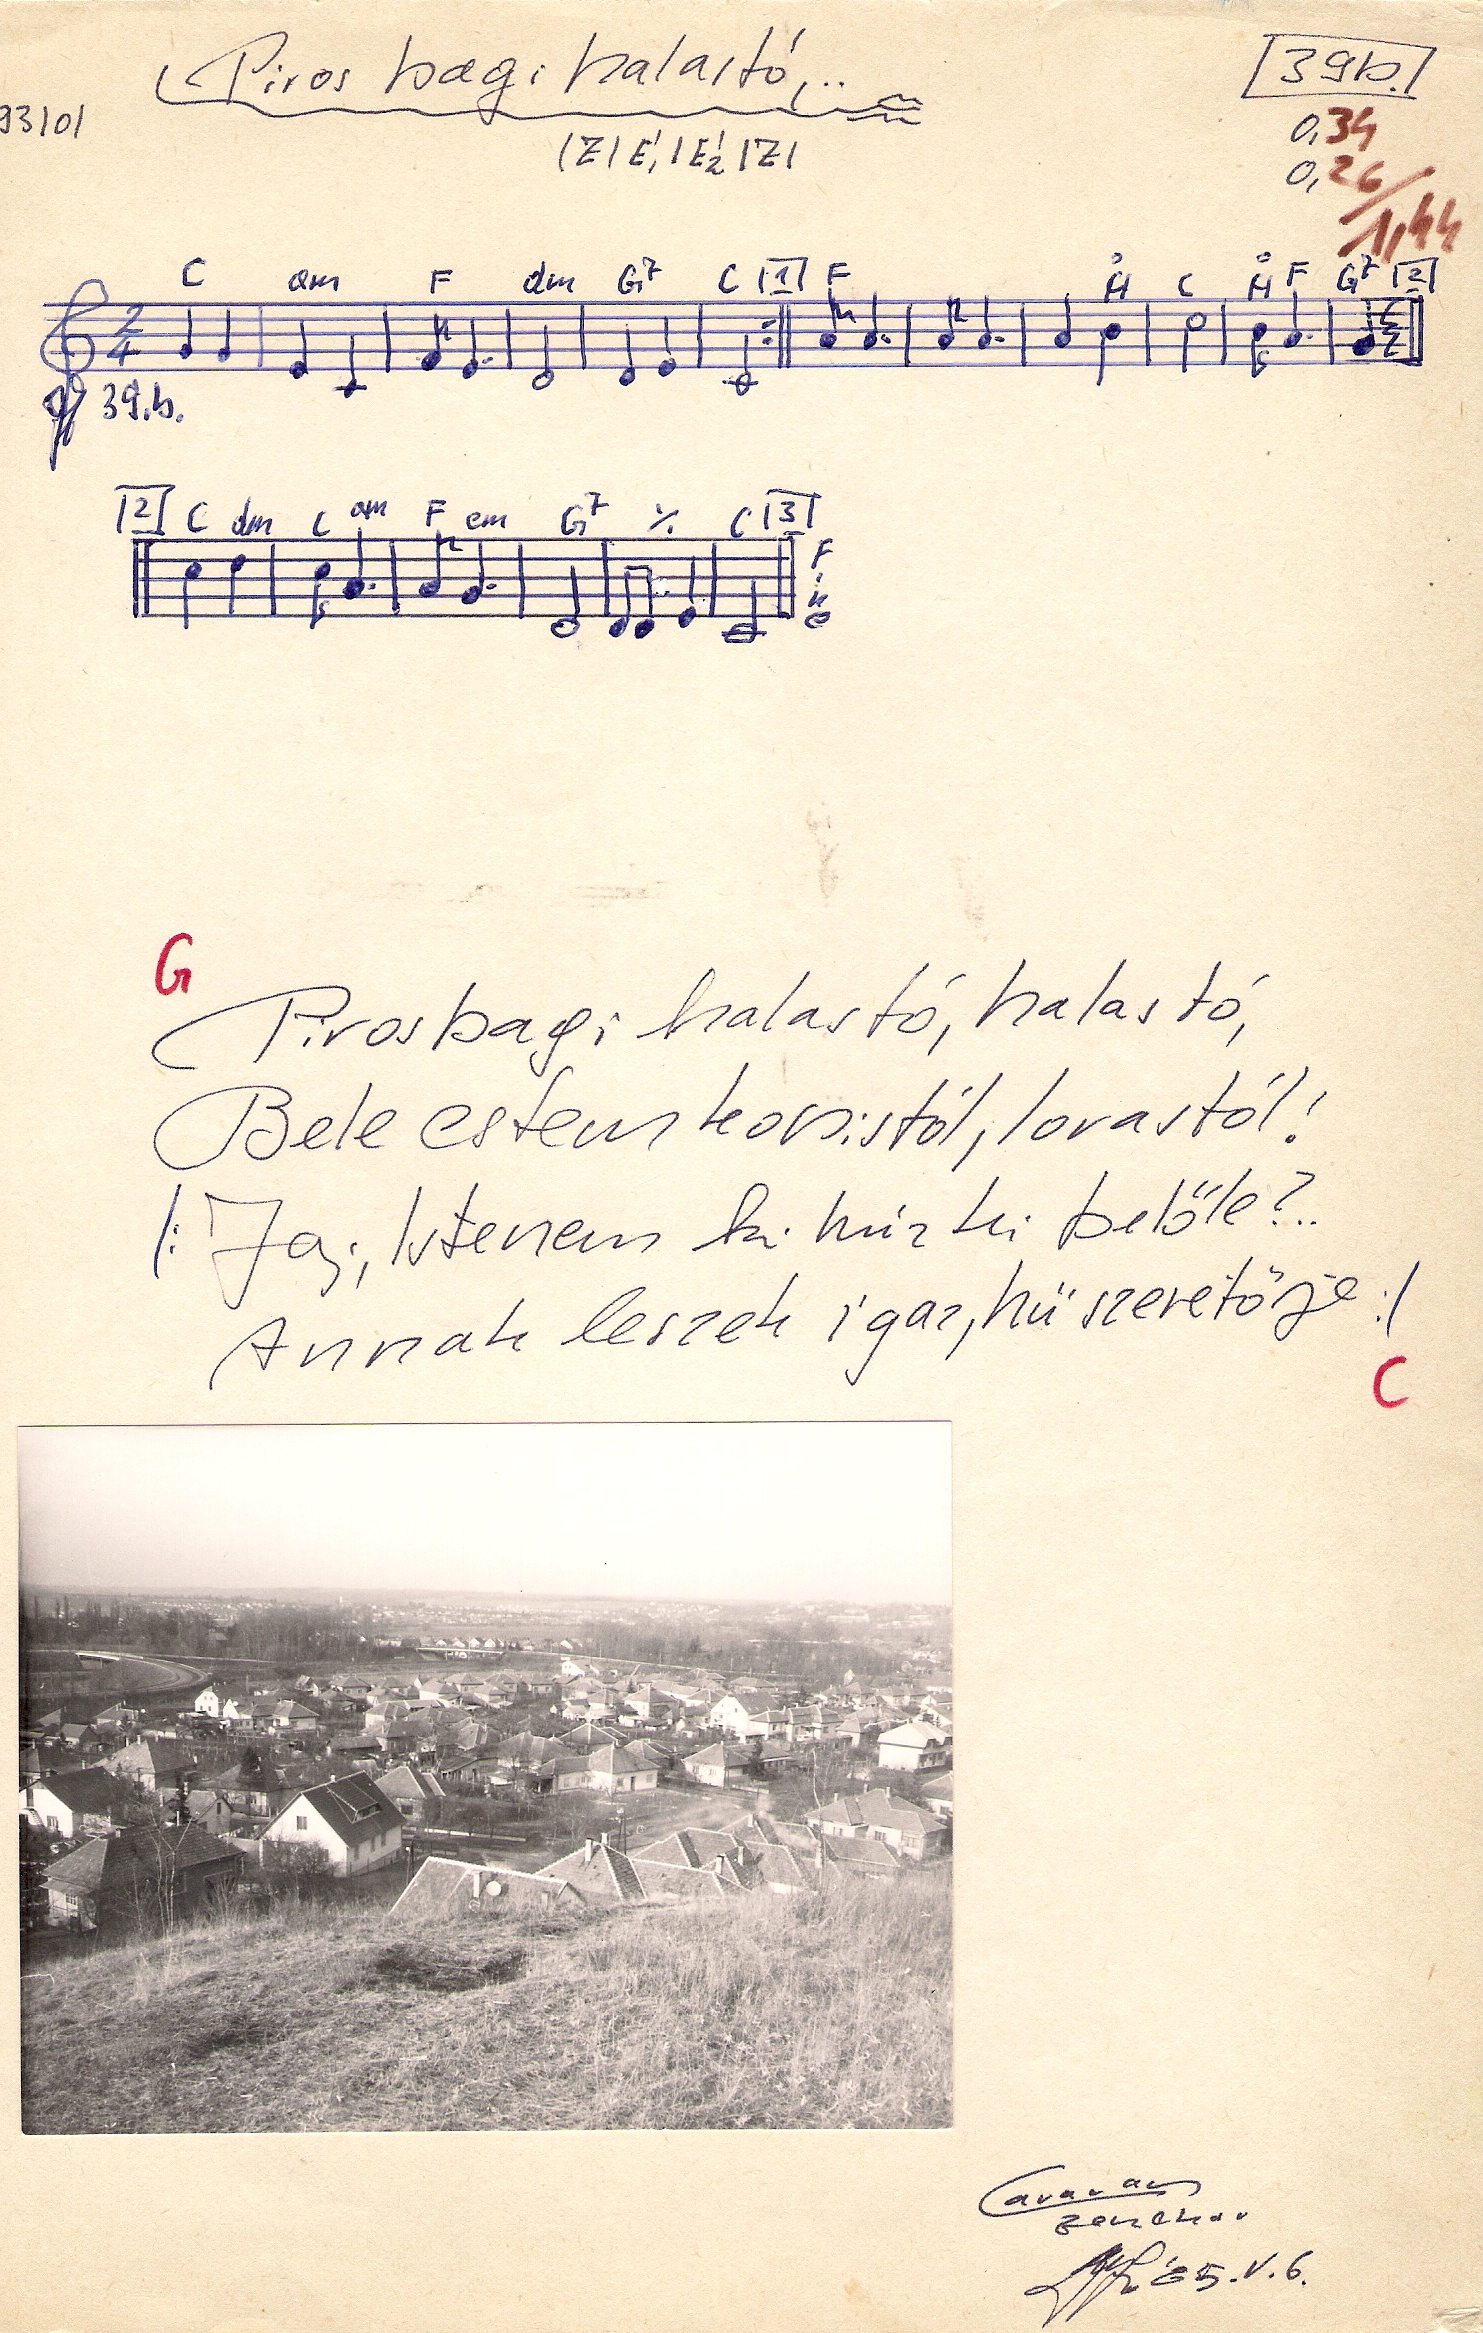 Piros bagi halastó,..
39b.
93101
0,34
|Z|E'1|E'2|Z|
0,26
1,44
C am F dm G7 C |1| F H° C H° F G7 |2|
2/4
39.b.
|2| C dm C am F em G7 ٪ C |3|
Fine
G
Piros bagi halastó, halastó,
Bele estem kocsistól, lovastól!
|: Jaj, Istenem ki húz ki belőle?..
Annak leszek igaz, hű szeretője :|
C
Caravan
zenekar
'85.V.6.